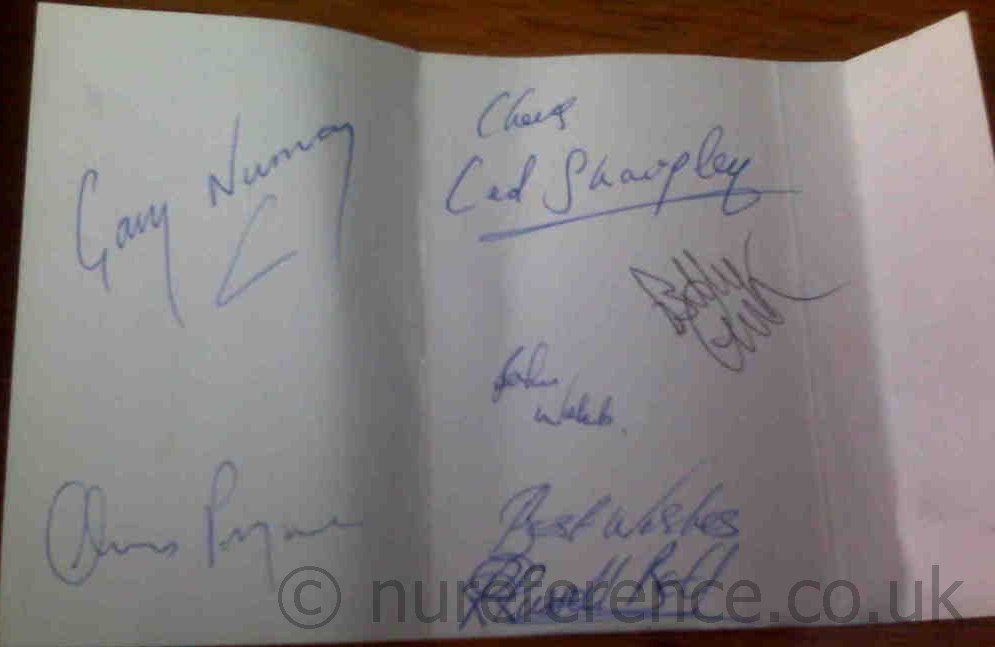 Gary Numan
Cheers
Ced Sharpley
John
Webb.
Chris Payne
Best Wishes
Russell Bell
© nureference.co.uk